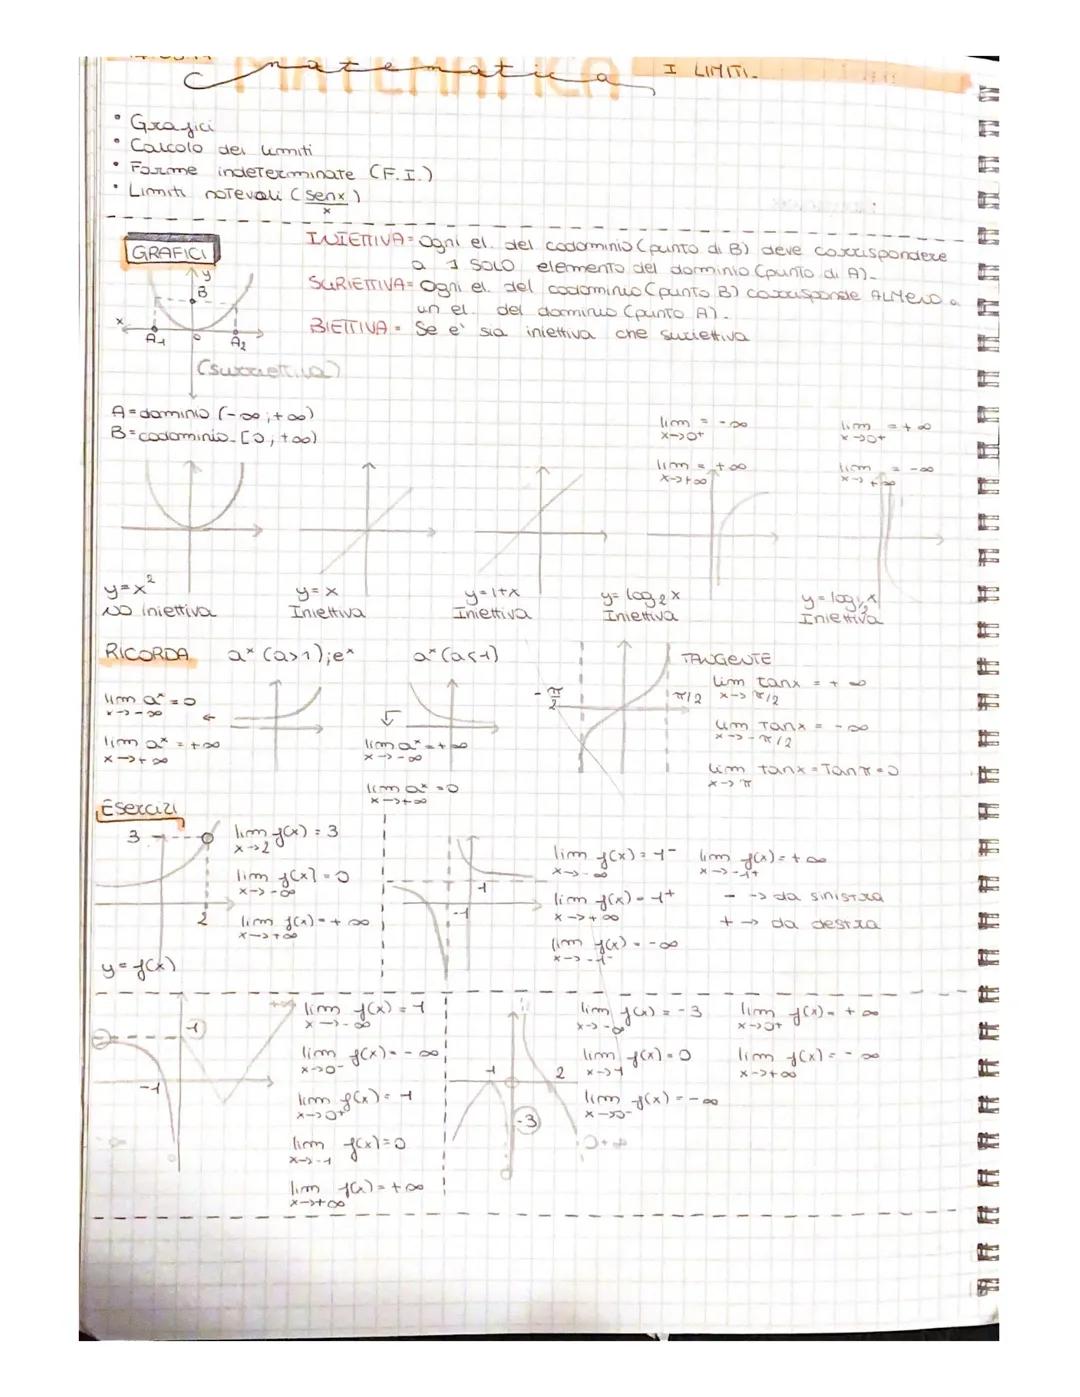 matematica I LIMITI.
• Grafici
• Calcolo dei limiti
• Forme indeterminate (F.I.)
• Limiti notevoli (senx/x)
GRAFICI
INIETTIVA= Ogni el. del codominio (punto di B) deve corrispondere
a 1 SOLO elemento del dominio (punto di A).
SURIETTIVA= Ogni el. del codominio (punto B) corrisponde ALMENO a
un el. del dominio (punto A).
BIETTIVA= Se e' sia iniettiva che suriettiva
y
B
x A1 0 A2
(suriettiva)
A=dominio (-∞;+∞)
B=codominio [0;+∞)
lim x->0+ = -∞
lim x->+∞ = +∞
lim x->0+ = +∞
lim x->+∞ = -∞
y=x²
NO iniettiva
y=x
Iniettiva
y=1+x
Iniettiva
y=log₂x
Iniettiva
y=log½x
Iniettiva
RICORDA aˣ (a>1);eˣ aˣ(a<1)
lim aˣ=0 x->-∞
lim aˣ=+∞ x->+∞
lim aˣ=+∞ x->-∞
lim aˣ=0 x->+∞
-π/2 π/2
TANGENTE
lim tanx = +∞ x->π/2
lim tanx = -∞ x->-π/2
lim tanx=Tanπ=0 x->π
Esercizi
3
2
y=f(x)
lim f(x)=3 x->2
lim f(x)=0 x->-∞
lim f(x)=+∞ x->+∞
1
-1
lim f(x)=1⁻ x->-∞
lim f(x)=1+ x->+∞
lim f(x)=-∞ x->-1⁻
lim f(x)=+∞ x->-1+
- -> da sinistra
+ -> da destra
1
-1
lim f(x)=1 x->-∞
lim f(x)=-∞ x->0-
lim f(x)=1 x->0+
lim f(x)=0 x->-1
lim f(x)=+∞ x->+∞
-1 2
-3
lim f(x)=-3 x->-∞
lim f(x)=0 x->1
lim f(x)=-∞ x->0-
lim f(x)=+∞ x->0+
lim f(x)=-∞ x->+∞